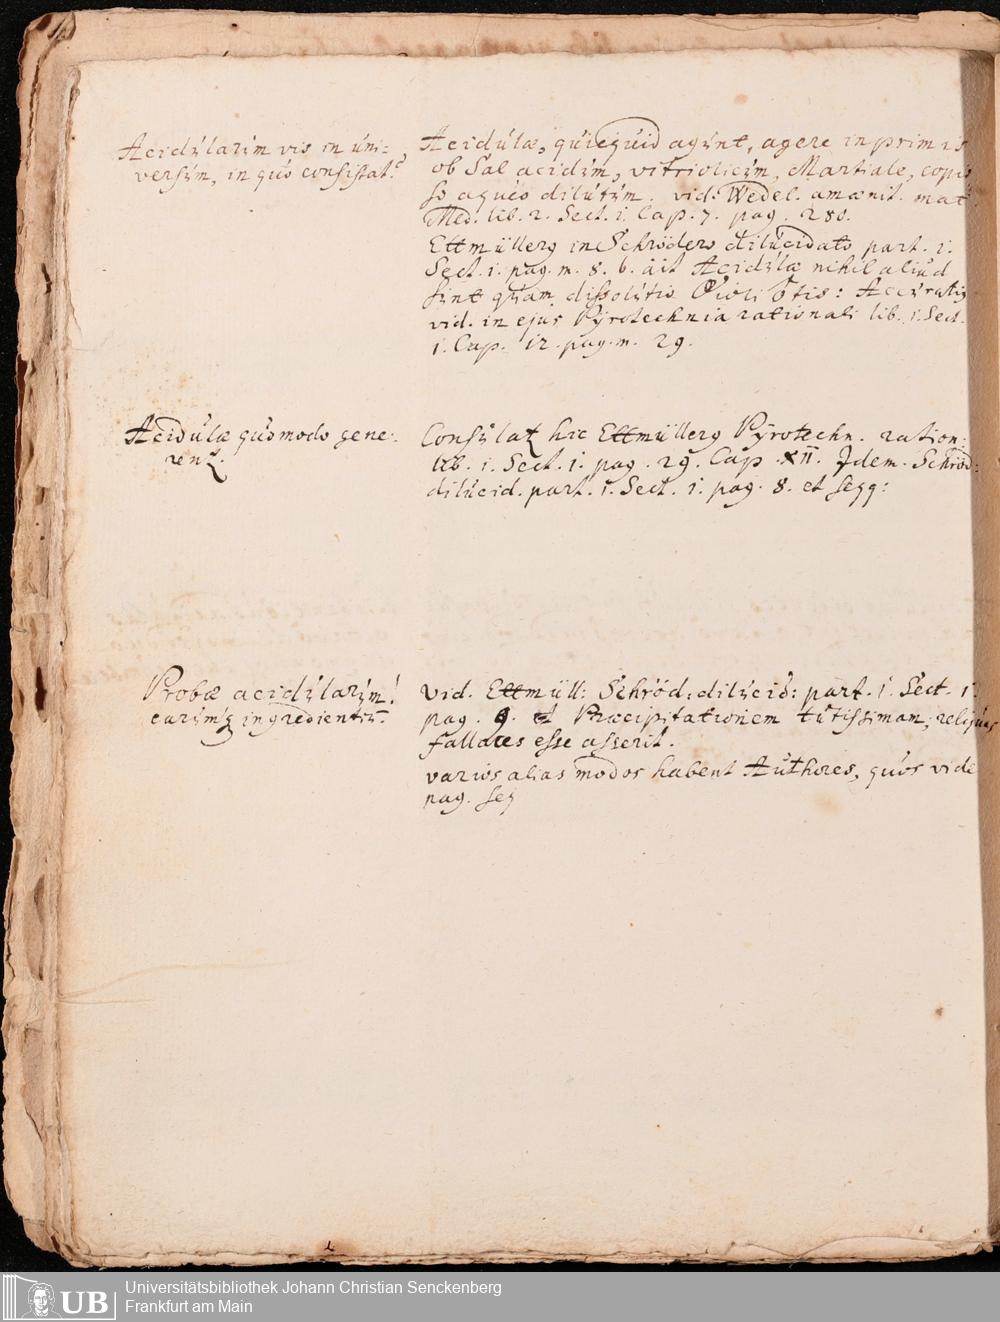 Acidularum vis in uni-
versum, in quo consistat?
Acidulæ, quicquid agunt, agere inprimis
ob Sal acidum, vitriolicum, Martiale, copio
so aqueo dilutum. vid. Wedel. amænit. mat
Med. lib. 2. Sect. 1. Cap. 7. pag. 280.
Ettmüllerg in Schrödero dilucidato part. 1.
Sect. 1. pag. m. 8. b. ait Acidulæ nihil aliud
sint quam dissolutio
vid. in ejus Pyrotechnia rationali lib. 1. Sect.
1. Cap. 12. pag. m. 29.
Acidulæ quomodo gene-
rent.
Consulat hic Ettmüllerg Pyrotechn. ration:
lib. 1. Sect. 1. pag. 29. Cap. XII. Idem. Schröd:
dilucid. part. 1. Sect. 1. pag. 8. et seqq:
Probæ acidularum!
earumq ingredientiu.
vid. Ettmüll: Schröd: dilucid: part. 1. Sect. 1.
pag. 9. et Præcipitationem tutissimam, reliquas
fallaces esse asserit.
varios alias modos habent Authores, quos vide
pag. seq
UB
Universitätsbibliothek Johann Christian Senckenberg
Frankfurt am Main